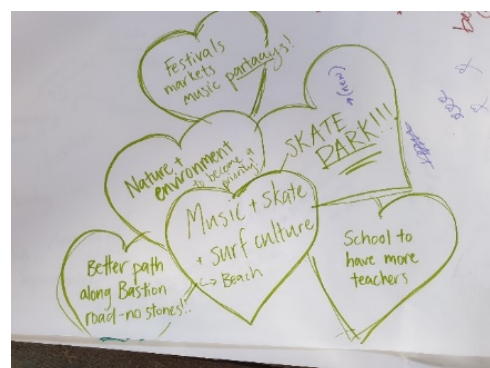 Festivals
markets
music partaays!
a (new)
SKATE
PARK!!!
Nature +
environment
to become a
priority!
Music + skate
+ surf culture
↳ Beach
Better path
along Bastion
road-no stones!..
School to
have more
teachers